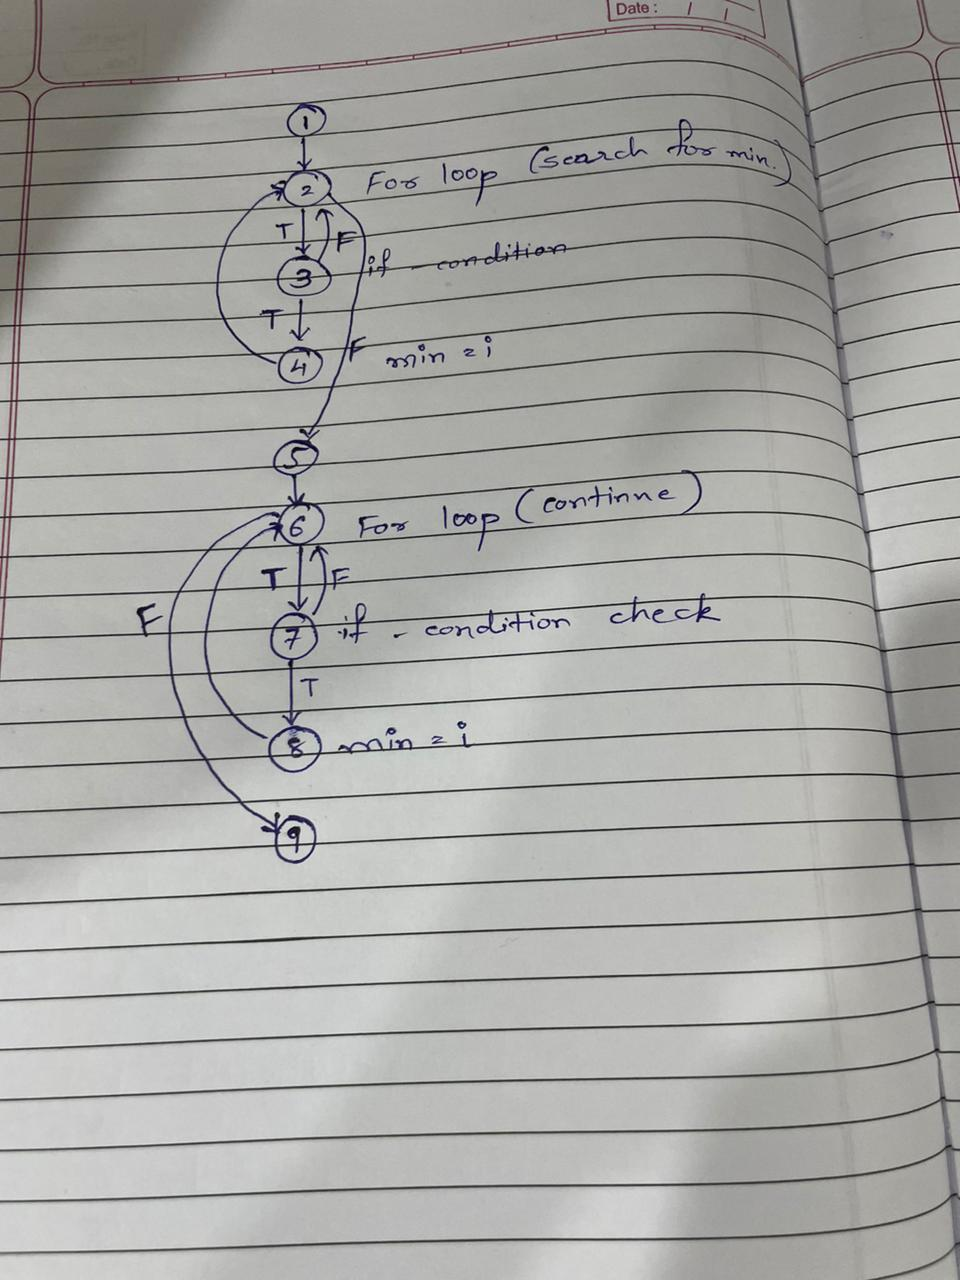 Date : / /
1
2 For loop (search for min.)
T F
3 if - condition
T
4 F min = i
5
6 For loop (continne)
T F
F
7 if - condition check
T
8 min = i
9